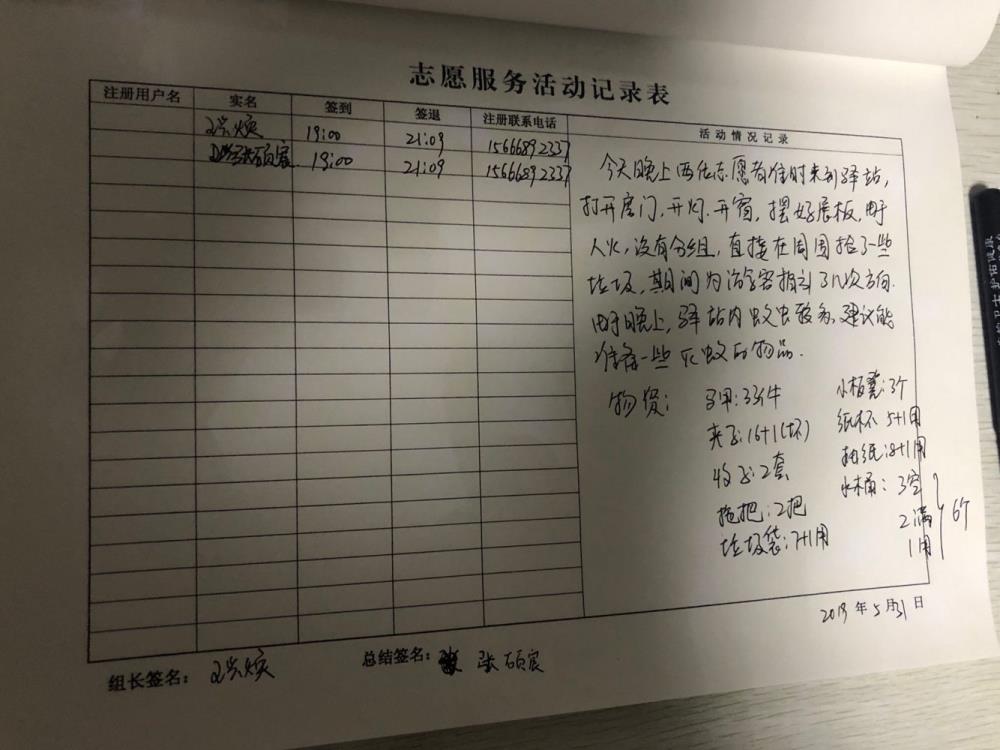 志愿服务活动记录表
注册用户名 实名 签到 签退 注册联系电话 活动情况记录
19:00 21:09 15666892337
张硕宸 19:00 21:09 15666892337
今天晚上两位志愿者准时来到驿站,
打开房门,开灯.开窗,摆好展板,由于
人少,没有分组,直接在周围捡了一些
垃圾,期间为游客指引了几次方向.
由于晚上,驿站内蚊虫较多,建议能
准备一些灭蚊的物品.
物资: 马甲:33件 小板凳:3个
夹子:16+1(坏) 纸杯 5+1用
收子:2套 抽纸:8+1用
拖把:2把 水桶:3空
垃圾袋:7+1用 2满 6个
1用
2019年5月31日
组长签名: 总结签名: 张硕宸